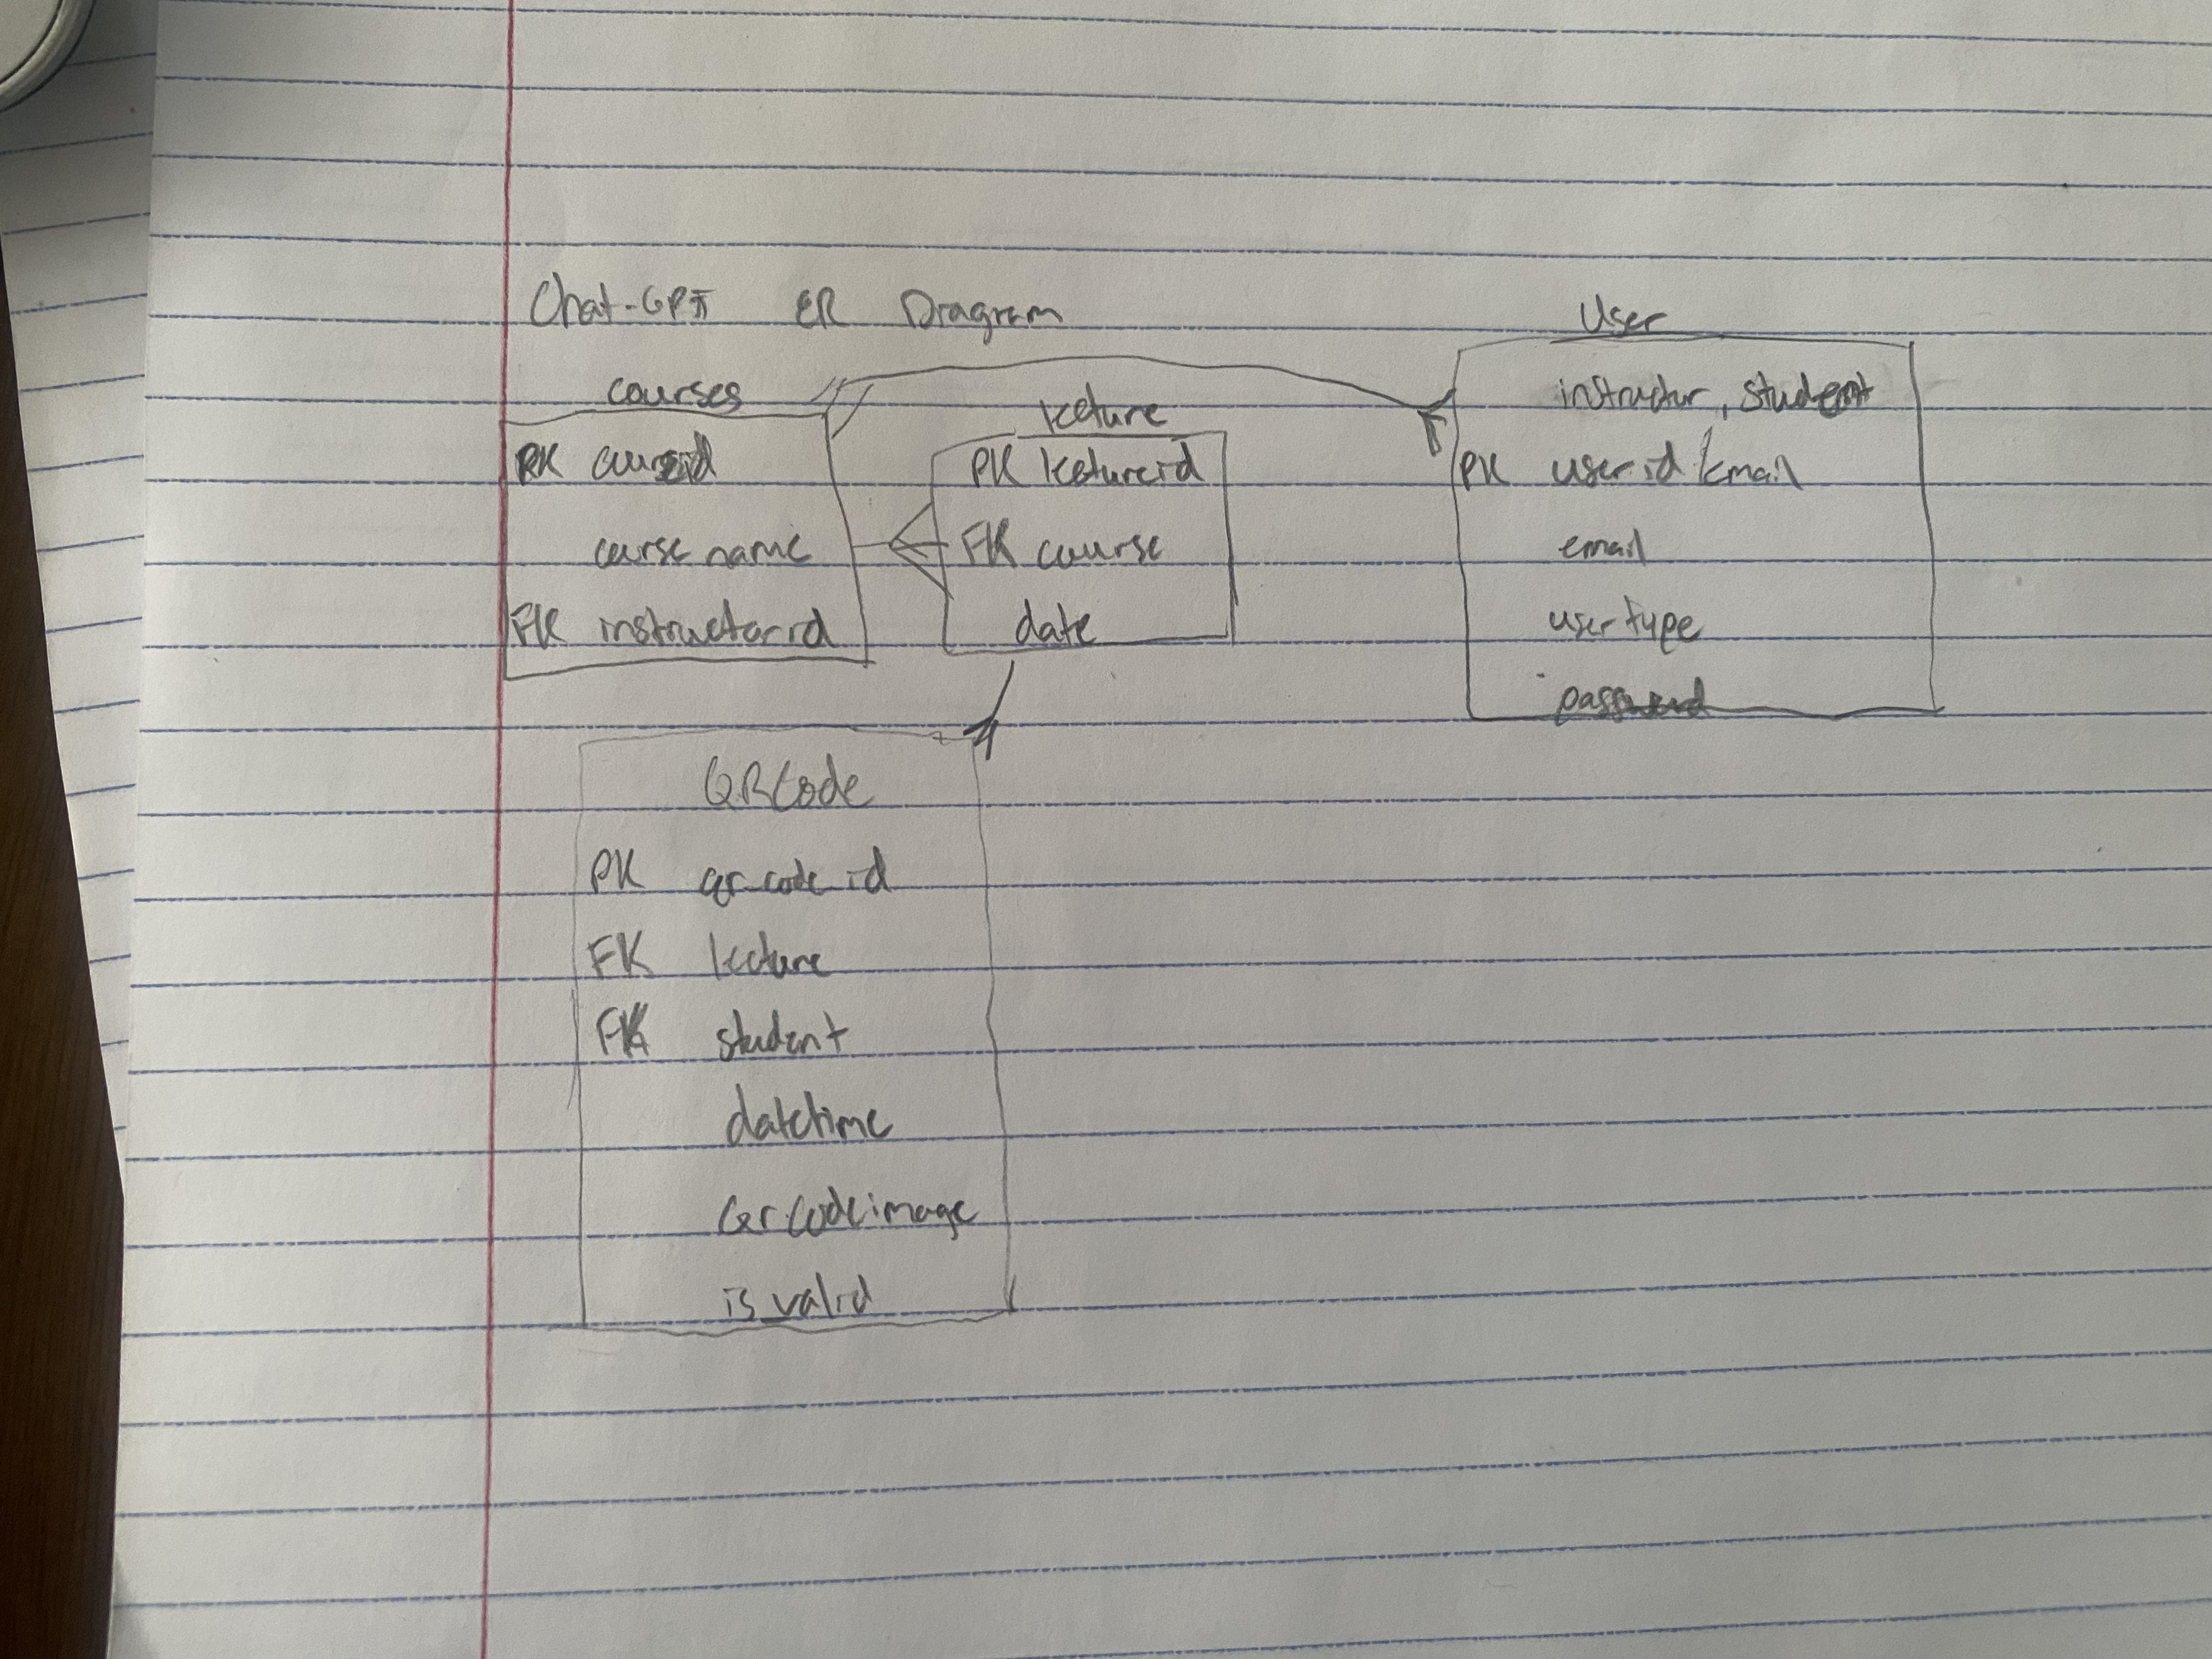 Chat-GPT ER Diagram
courses
PK courseid
course name
FK instructor id
lecture
PK lectureid
FK course
date
User
instructor, student
PK user id/email
email
user type
password
QRCode
PK qr code id
FK lecture
FK student
datetime
Qr Code image
is_valid